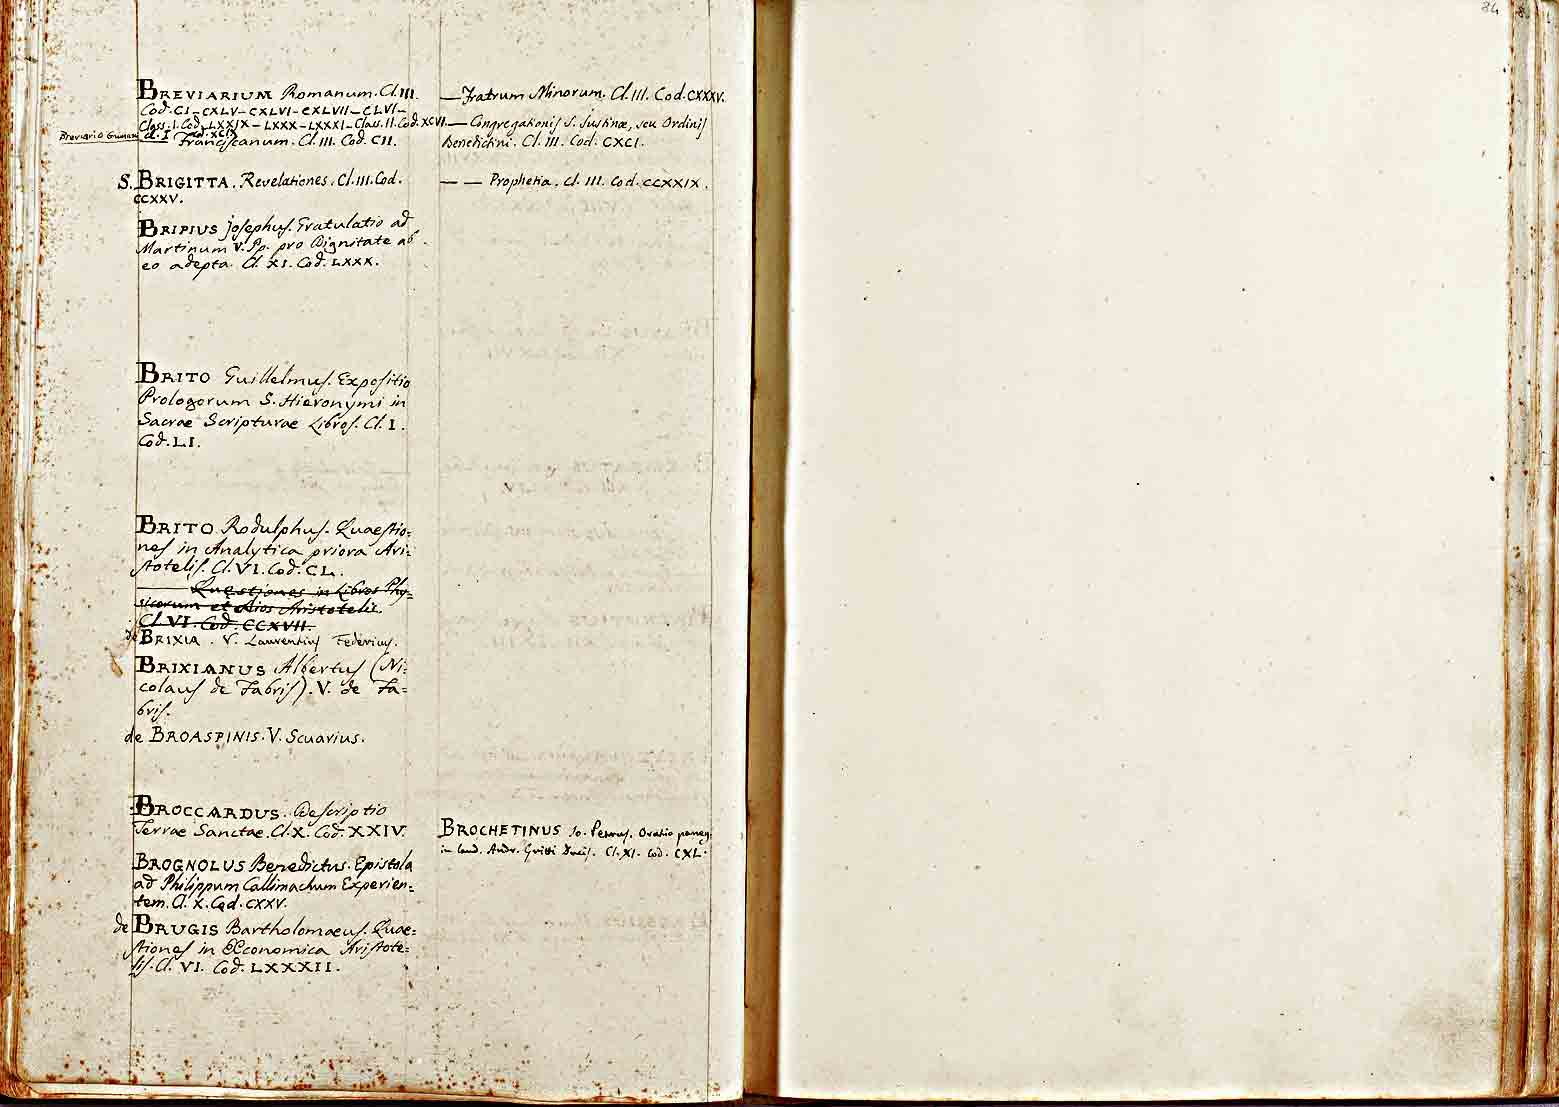 84
BREVIARIUM Romanum. Cl. III.
Cod. CI – CXLV – CXLVI – CXLVII – CLVI –
Class. I. Cod. LXXIX – LXXX – LXXXI – Class. II. Cod. XCVI.
Breviario Grimani Cl. I Cod. XCIX
Franciscanum. Cl. III. Cod. CII.
S. BRIGITTA. Revelationes. Cl. III. Cod.
CCXXV.
BRIPIUS Josephus. Gratulatio ad
Martinum V. Pp. pro Dignitate ab
eo adepta. Cl. XI. Cod. LXXX.
BRITO Guillelmus. Expositio
Prologorum S. Hieronymi in
Sacrae Scripturae Libros. Cl. I.
Cod. LI.
BRITO Rodulphus. Quaestio:
nes in Analytica priora Ari:
stotelis. Cl. VI. Cod. CL.
—— Quaestiones in Libros Phy:
sicorum et Alios Aristotelis.
Cl. VI. Cod. CCXVII.
de BRIXIA. V. Laurentius Federius.
BRIXIANUS Albertus (Ni:
colaus de Fabris). V. de Fa=
bris.
de BROASPINIS. V. Scuarius.
BROCCARDUS. Descriptio
Terrae Sanctae. Cl. X. Cod. XXIV.
BROGNOLUS Benedictus. Epistola
ad Philippum Callimachum Experien:
tem. Cl. X. Cod. CXXV.
de BRUGIS Bartholomaeus. Quae=
stiones in Œconomica Aristote=
lis. Cl. VI. Cod. LXXXII.
— Fratrum Minorum. Cl. III. Cod. CXXXV.
— Congregationis S. Justinae, seu Ordinis
Benedictini. Cl. III. Cod. CXCI.
— — Prophetia. Cl. III. Cod. CCXXIX.
BROCHETINUS Jo. Petrus. Oratio paneg:
in laud. Andr. Gritti Ducis. Cl. XI. Cod. CXL.